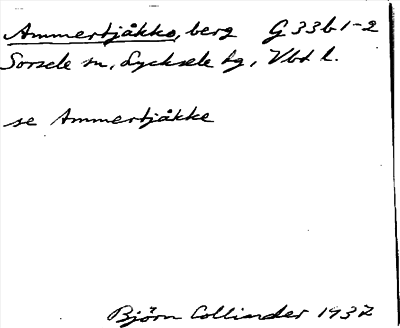 Ammertjåkko, berg G 33b 1-2
Sorsele sn, Lycksele tg, Vbd l.
se Ammertjåkke
Björn Collinder 1937